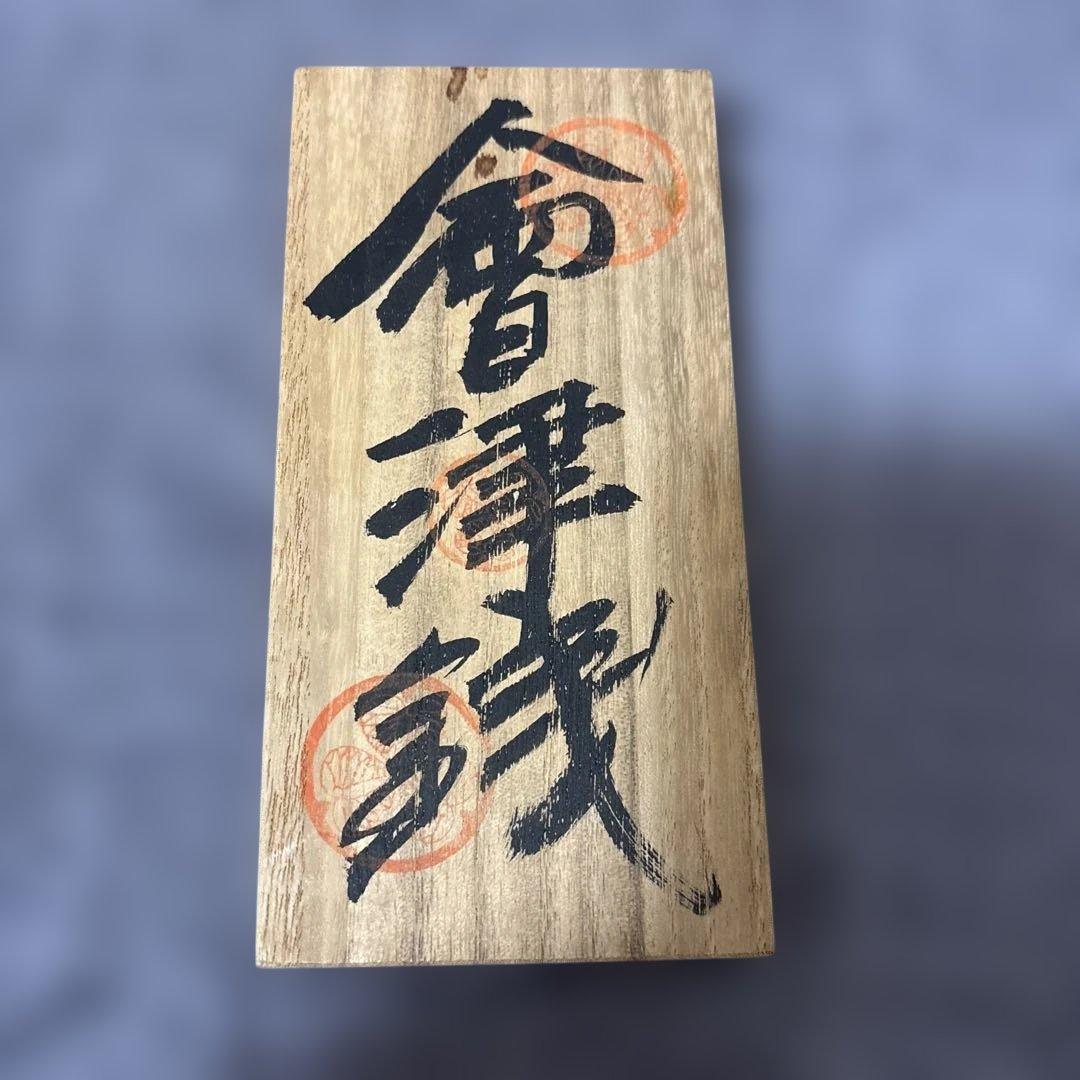 會津銭